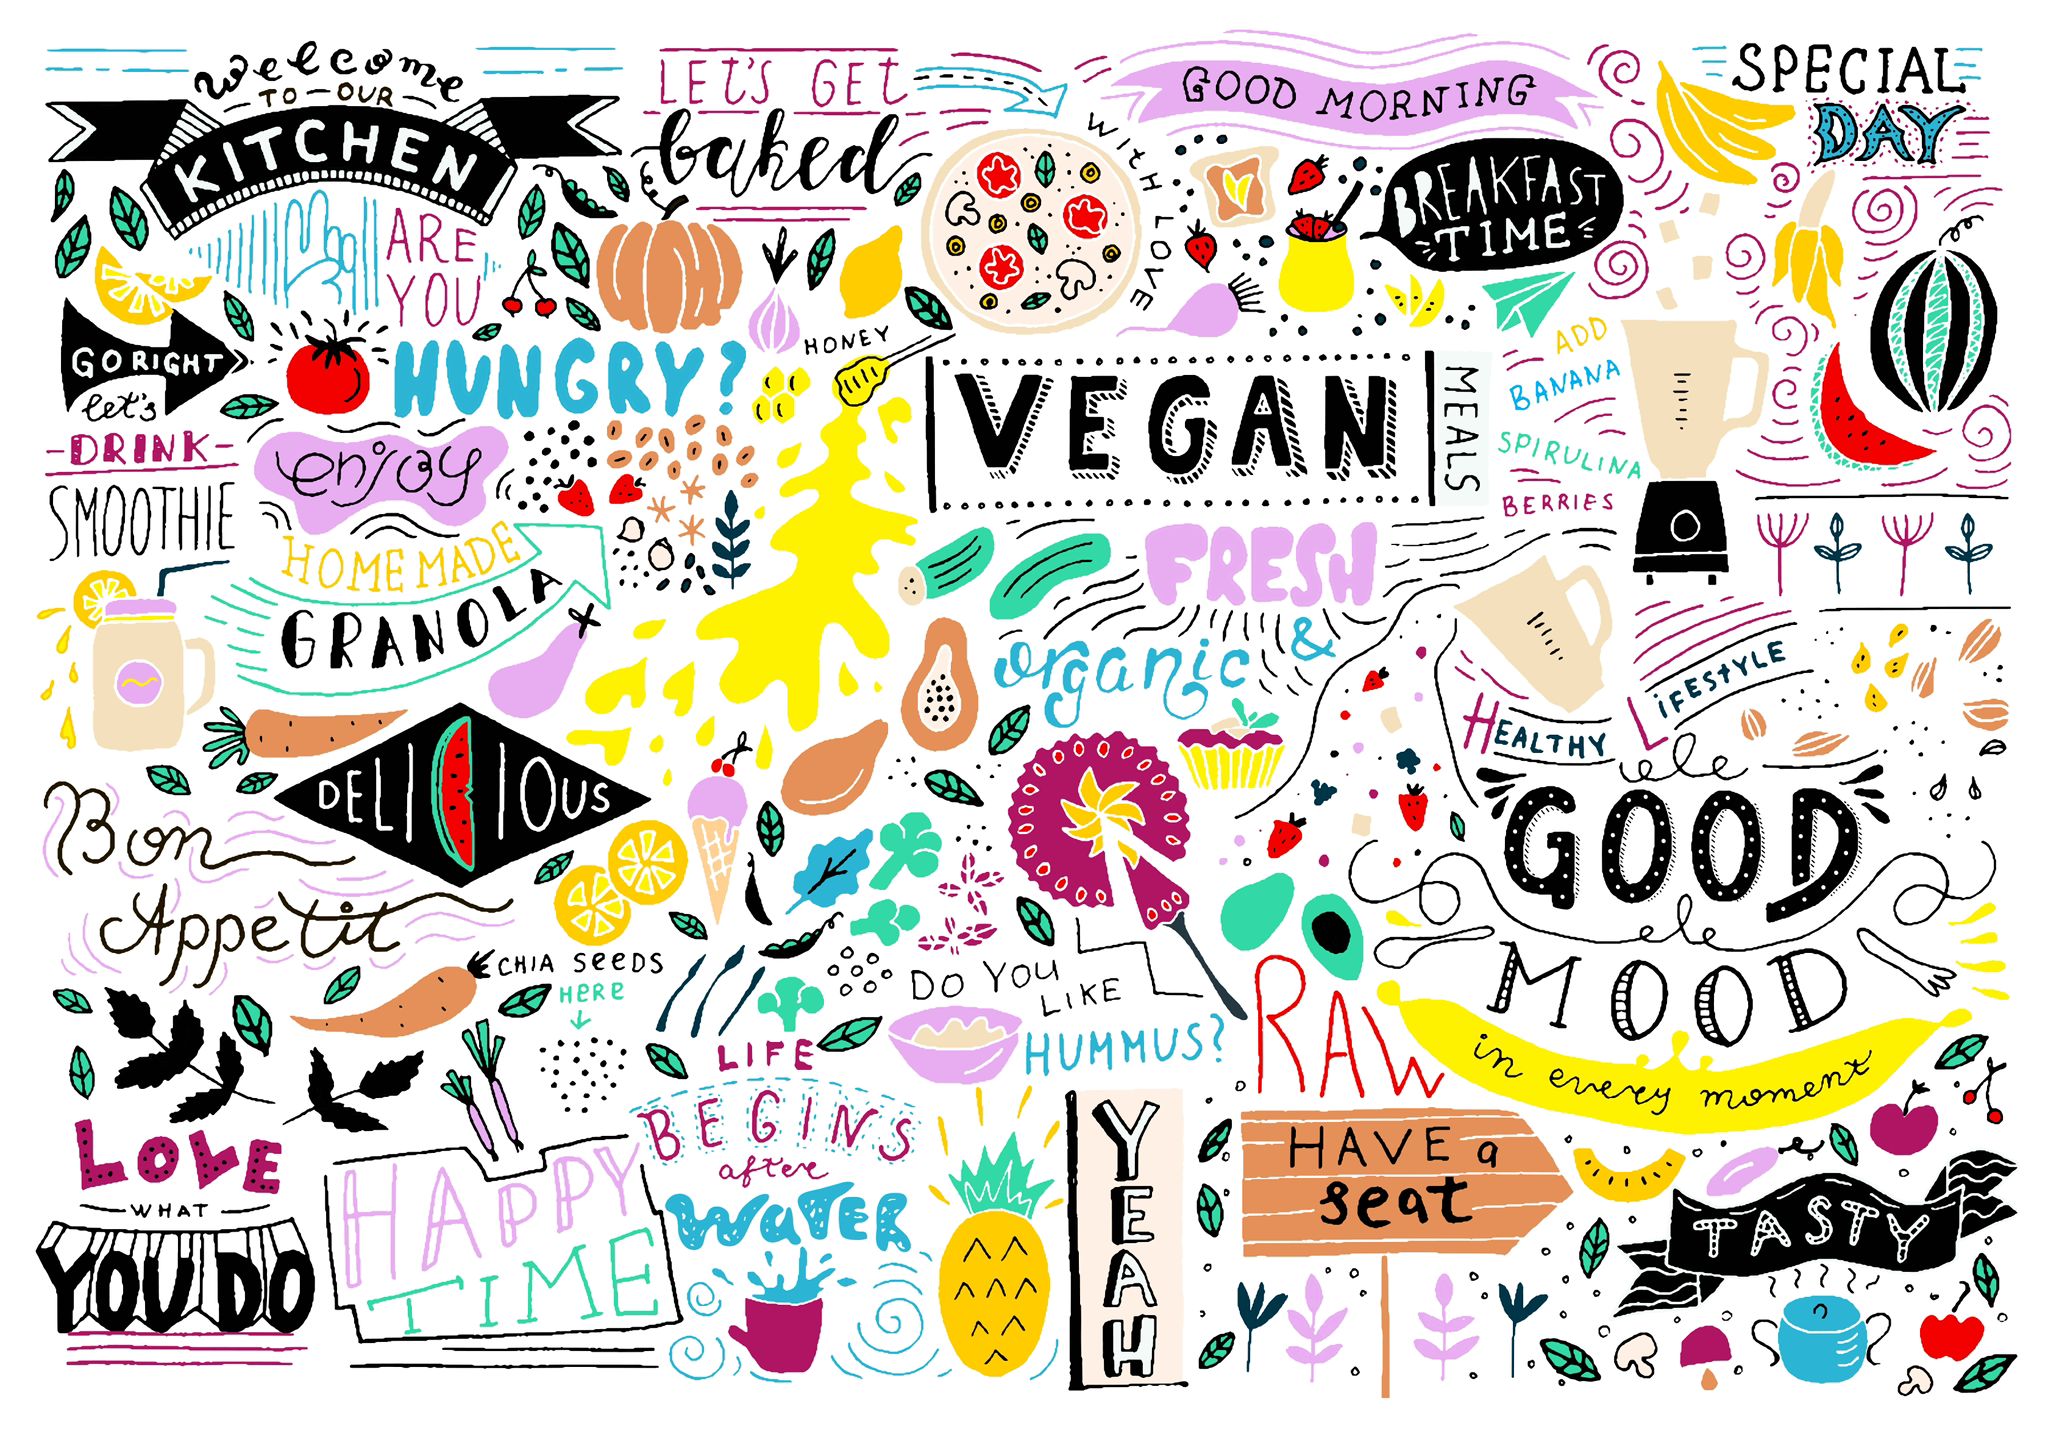 Welcome
TO OUR
KITCHEN
ARE
YOU
HUNGRY?
LET'S GET
baked
WITH LOVE
GOOD MORNING
BREAKFAST
TIME
SPECIAL
DAY
GO RIGHT
let's
DRINK
SMOOTHIE
enjoy
HOMEMADE
GRANOLA
HONEY
VEGAN
MEALS
ADD
BANANA
SPIRULINA
BERRIES
FRESH
&
organic
HEALTHY
LIFESTYLE
DELICIOUS
Bon
Appetit
CHIA SEEDS
HERE
DO YOU
LIKE
HUMMUS?
GOOD
MOOD
in every moment
RAW
LOVE
WHAT
YOU DO
HAPPY
TIME
LIFE
BEGINS
after
WATER
YEAH
HAVE a
seat
TASTY